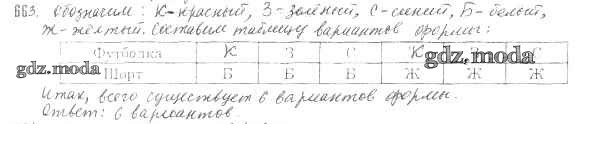 663. Обозначим: К-красный, З-зелёный, С-синий, Б-белый,
Ж-жёлтый. Составим таблицу вариантов формы:
Футболка К З С К С
gdz.moda
Шорт Б Б Б Ж Ж Ж
gdz.moda
Итак, всего существует 6 вариантов формы.
Ответ: 6 вариантов.